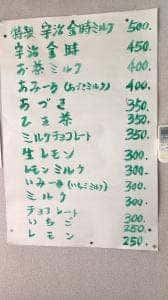 特製 宇治金時ミルク 500.
宇治金時 450.
お茶ミルク 400.
あみーか(あづきミルク) 400.
あづき 350.
ひき茶 350.
ミルクチョコレート 350.
生レモン 300.
レモンミルク 300.
いみーき(いちごミルク) 300.
ミルク 300.
チョコレート 300.
いちご 250.
レモン 250.